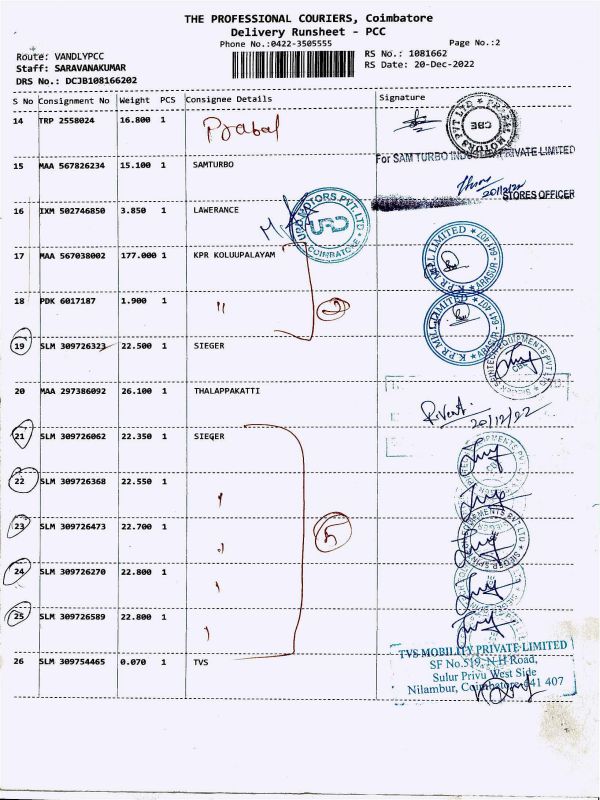 THE PROFESSIONAL COURIERS, Coimbatore
Delivery Runsheet - PCC
Phone No.:0422-3505555
Page No.:2
Route: VANDLYPCC
Staff: SARAVANAKUMAR
DRS No.: DCJB108166202
RS No.: 1081662
RS Date: 20-Dec-2022
S No Consignment No Weight PCS Consignee Details Signature
14 TRP 2558024 16.800 1
CBE
15 MAA 567826234 15.100 1 SAMTURBO
For SAM TURBO INDUSTRY PRIVATE LIMITED
20/12/22
STORES OFFICER
16 IXM 502746850 3.850 1 LAWERANCE
MOTORS PVT. LTD
COIMBATORE
17 MAA 567038002 177.000 1 KPR KOLUUPALAYAM
K.P.R. MILL LIMITED ARASUR - 641 407
18 PDK 6017187 1.900 1 "
2
K.P.R. MILL LIMITED ARASUR - 641 407
19 SLM 309726323 22.500 1 SIEGER
20 MAA 297386092 26.100 1 THALAPPAKATTI
20/12/22
21 SLM 309726062 22.350 1 SIEGER
22 SLM 309726368 22.550 1
23 SLM 309726473 22.700 1
5
24 SLM 309726270 22.800 1
25 SLM 309726589 22.800 1
26 SLM 309754465 0.070 1 TVS
TVS MOBILITY PRIVATE LIMITED
SF No.519, N H Road,
Sulur Privu West Side
Nilambur, Coimbatore-641 407